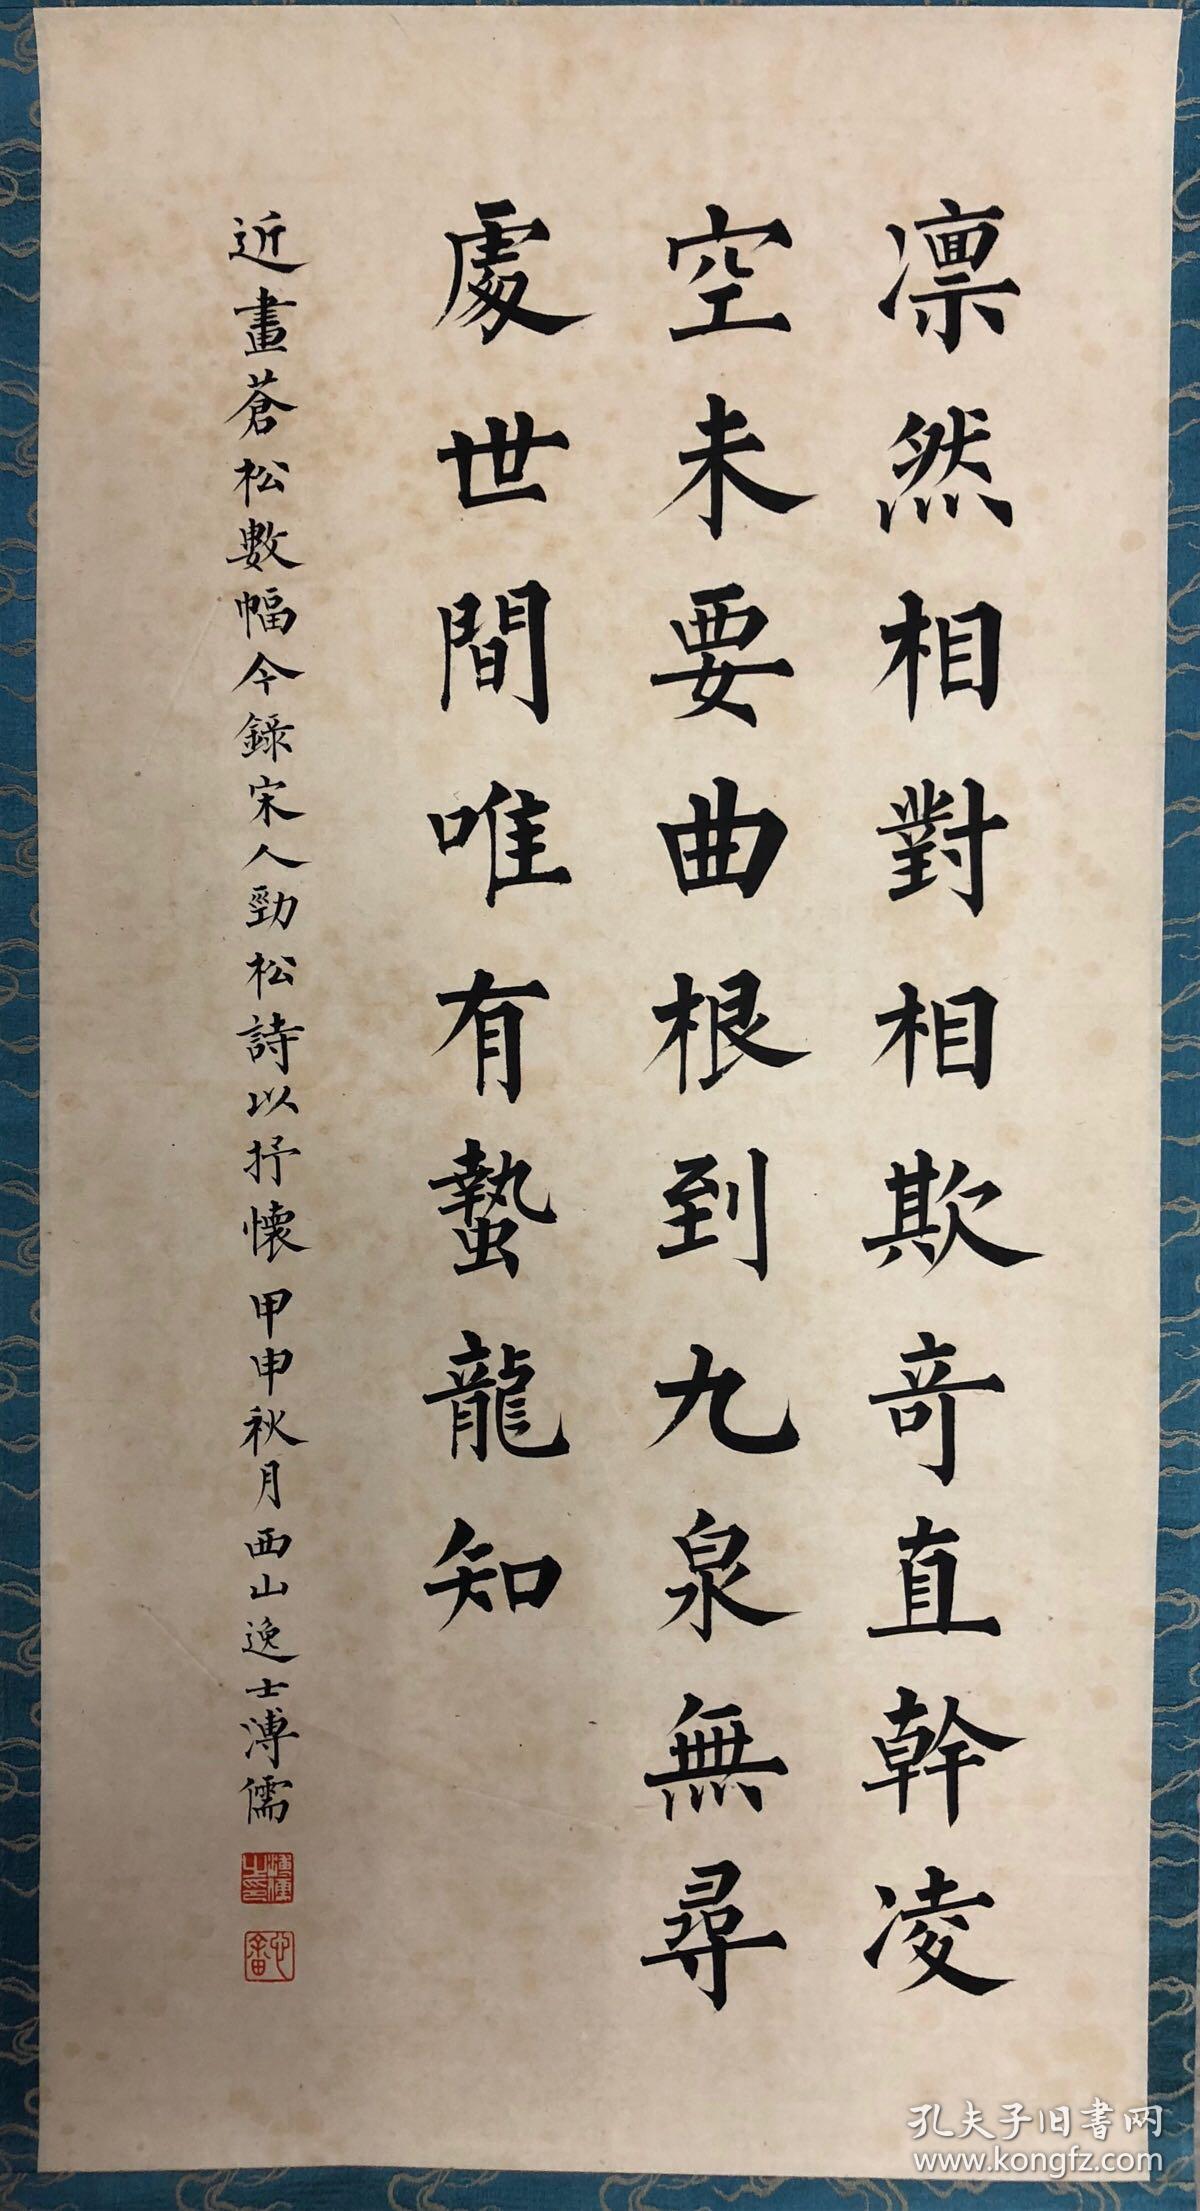 凛然相對相欺奇直幹凌
空未要曲根到九泉無尋
處世間唯有蟄龍知
近畫蒼松數幅今錄宋人勁松詩以抒懷甲申秋月西山逸士溥儒
溥儒之印
心畬
孔夫子旧书网
www.kongfz.com